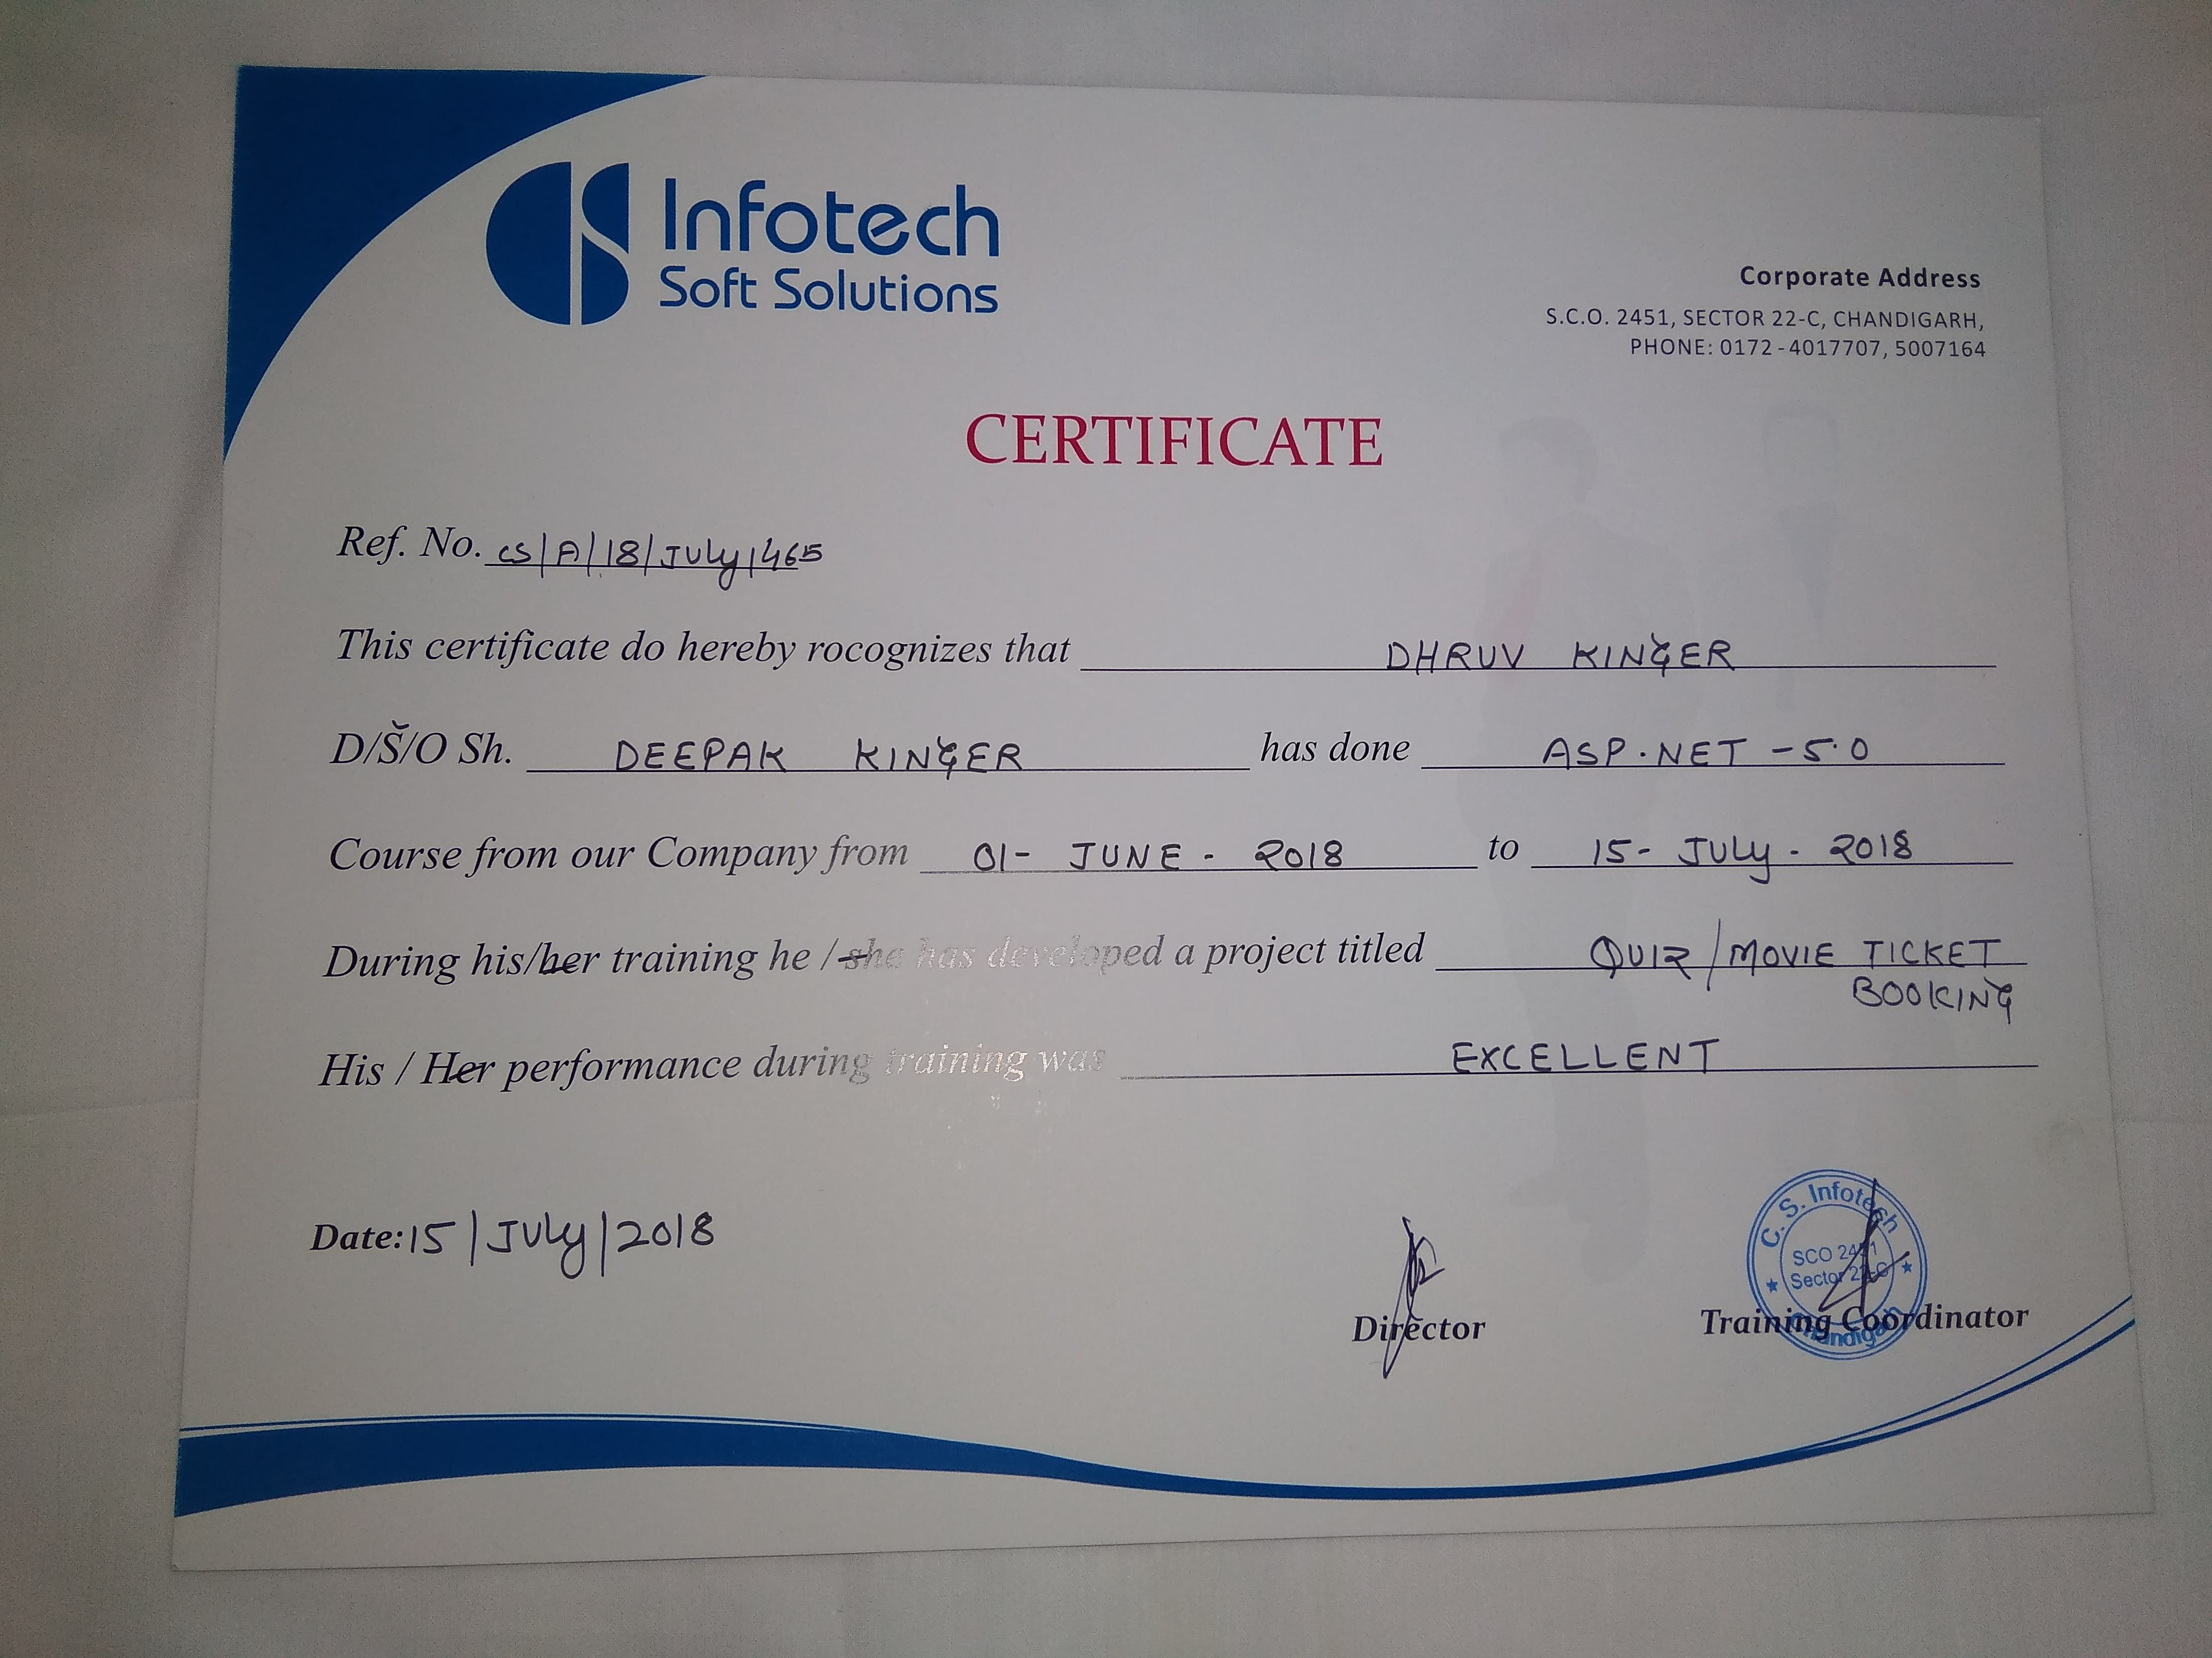 Infotech
Soft Solutions
Corporate Address
S.C.O. 2451, SECTOR 22-C, CHANDIGARH,
PHONE: 0172-4017707, 5007164
CERTIFICATE
Ref. No. CS|A|18|JULY|465
This certificate do hereby rocognizes that DHRUV KINGER
D/S/O Sh. DEEPAK KINGER has done ASP.NET -5.0
Course from our Company from 01- JUNE - 2018 to 15- JULY - 2018
During his/her training he /she has developed a project titled QUIZ/MOVIE TICKET
BOOKING
His / Her performance during training was EXCELLENT
Date: 15|JULY|2018
C. S. Infotech
SCO 2451
Sector 22-C
Chandigarh
Director
Training Coordinator